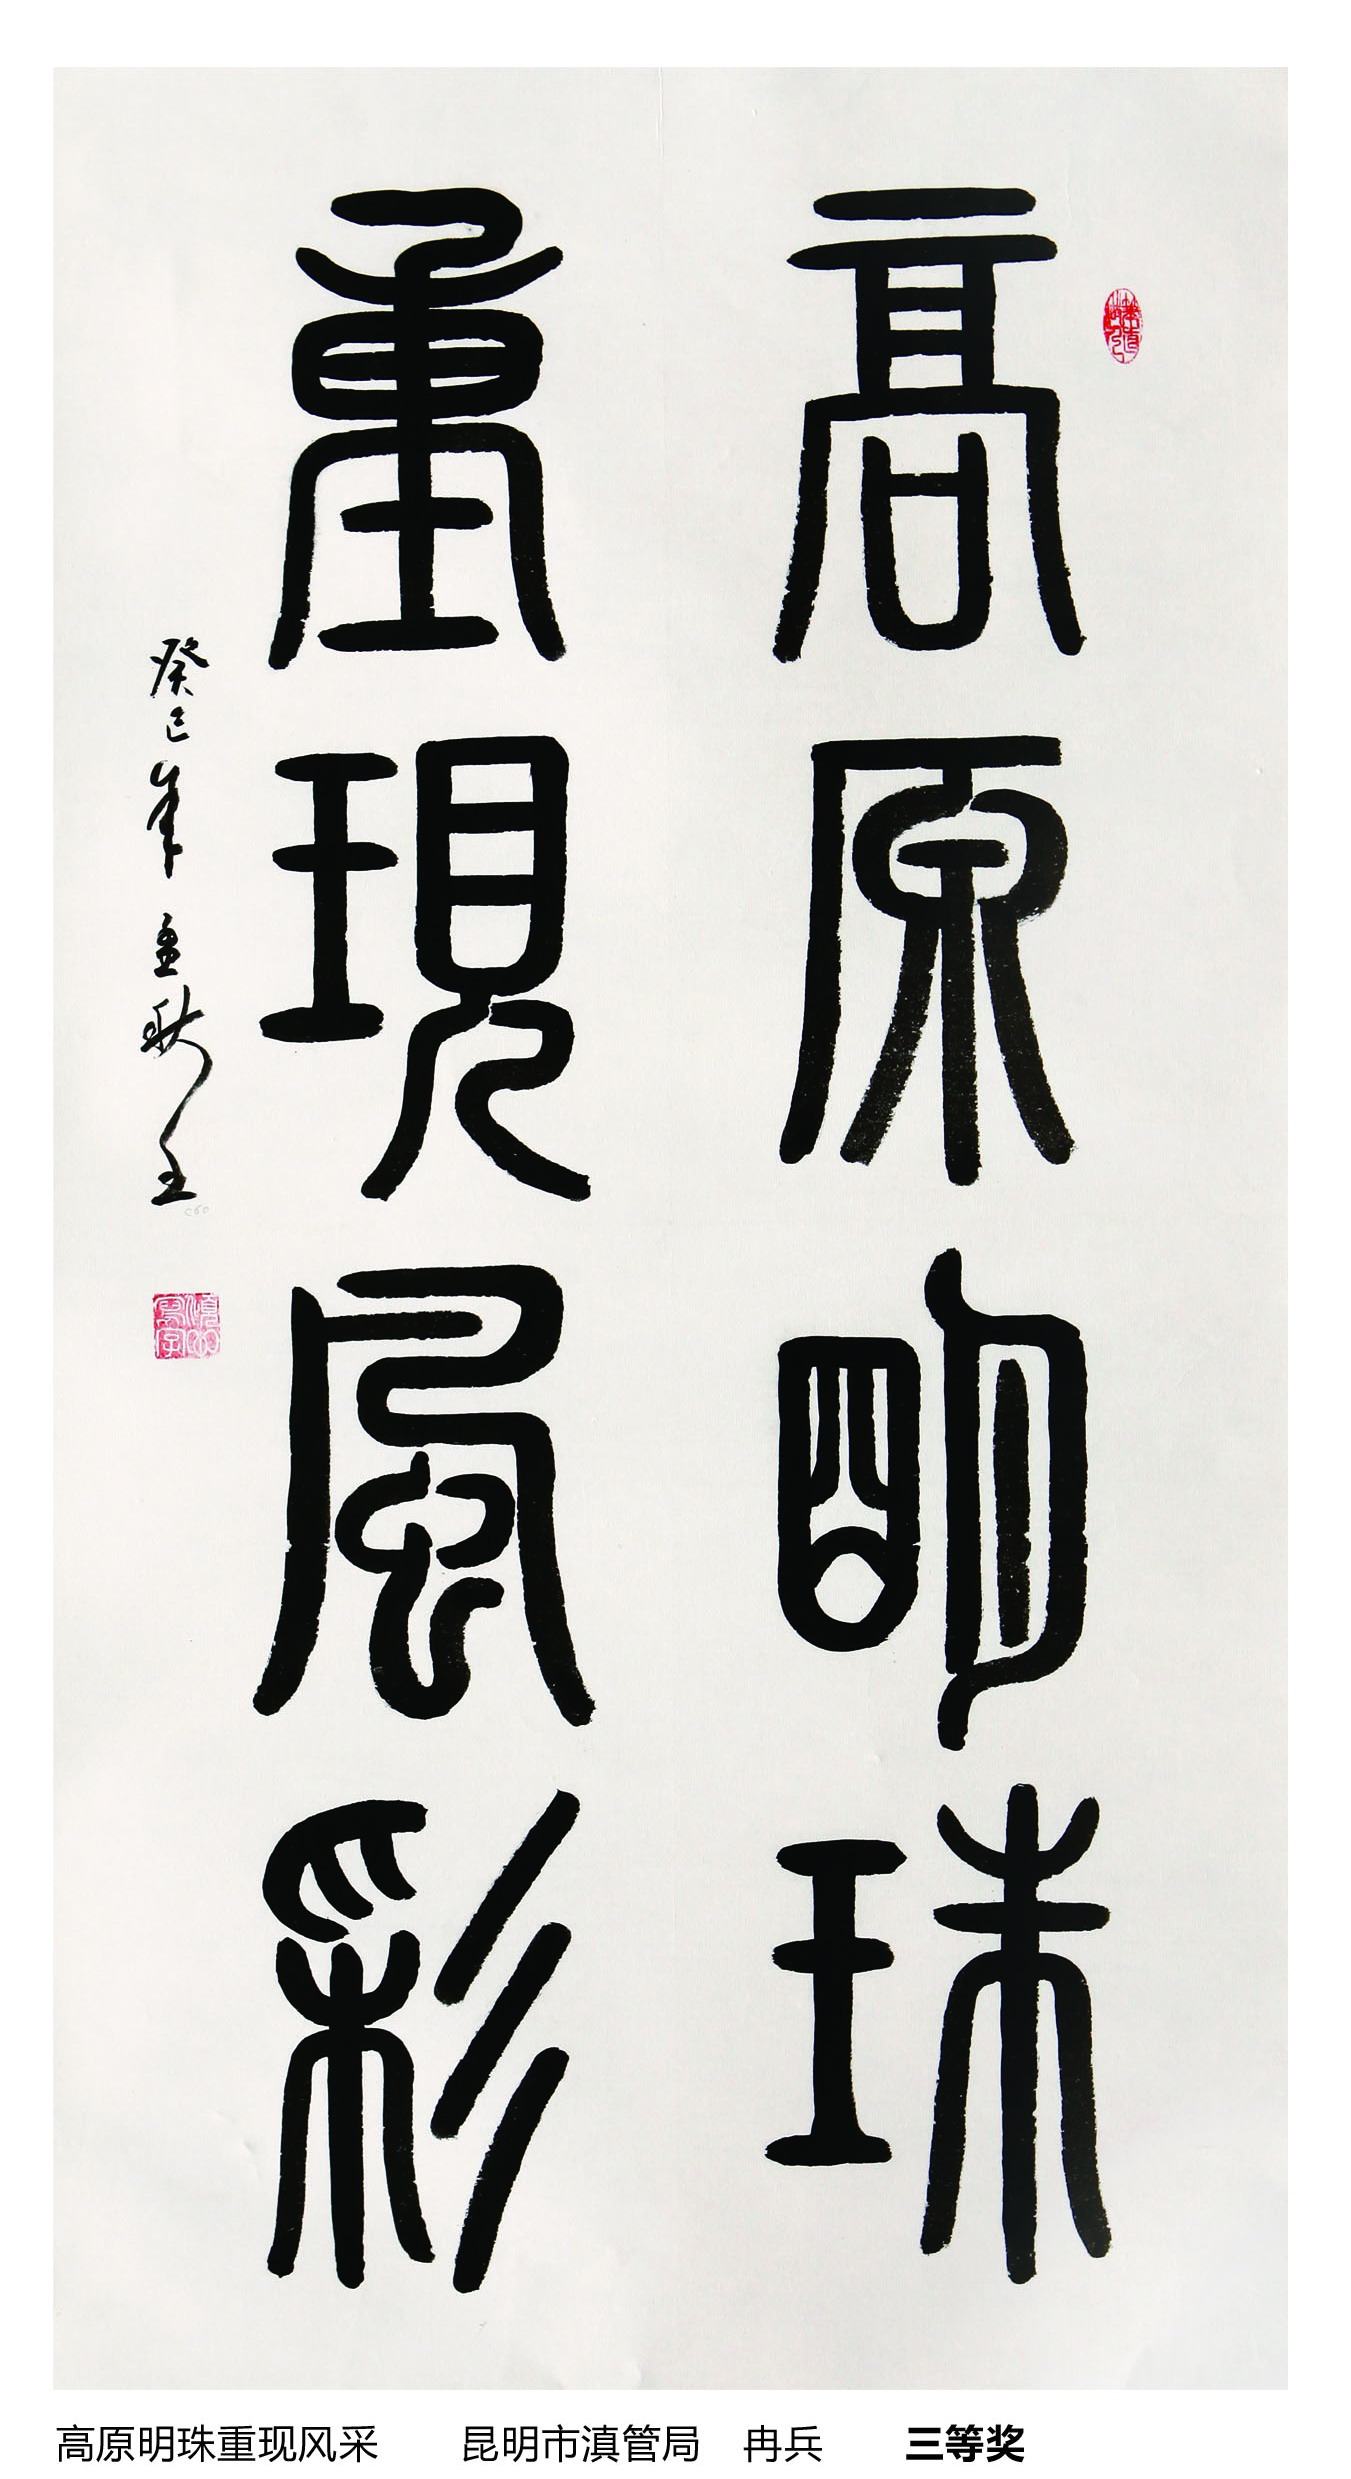 高原明珠
重現風彩
癸巳年孟秋
高原明珠重现风采 昆明市滇管局 冉兵 三等奖